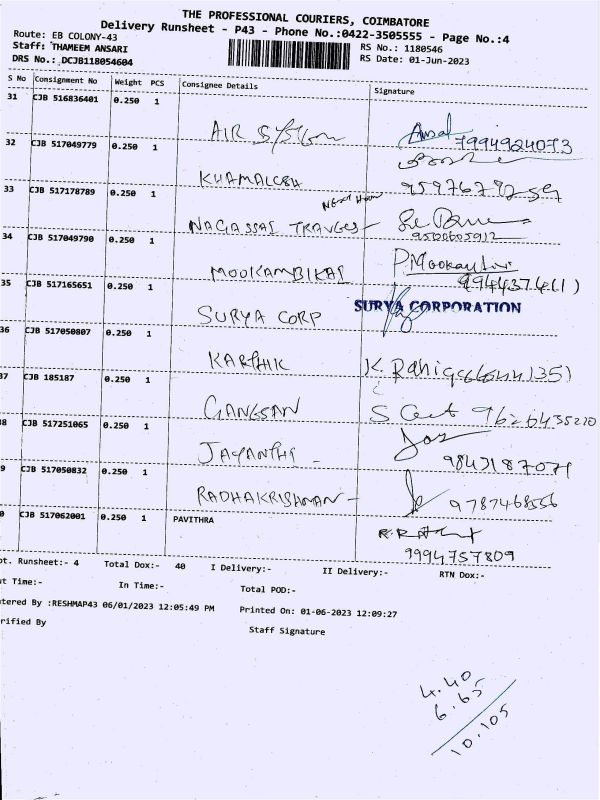 THE PROFESSIONAL COURIERS, COIMBATORE
Delivery Runsheet - P43 - Phone No.:0422-3505555 - Page No.:4
Route: EB COLONY-43
Staff: THAMEEM ANSARI RS No.: 1180546
DRS No.: DCJB118054604 RS Date: 01-Jun-2023
S No Consignment No Weight PCS Consignee Details Signature
31 CJB 516836401 0.250 1
AIR System 7994924073
32 CJB 517049779 0.250 1
KHAMALESH
33 CJB 517178789 0.250 1
NAGASSAI
34 CJB 517049790 0.250 1
MOOKAMBIKAI
35 CJB 517165651 0.250 1
SURYA CORP SURYA CORPORATION
36 CJB 517050807 0.250 1
KARTHIK
37 CJB 185187 0.250 1
GANESAN
8 CJB 517251065 0.250 1
JAYANTHI - 9843187071
9 CJB 517050832 0.250 1
RADHAKRISHNAN - 9787468556
0 CJB 517062001 0.250 1 PAVITHRA
9994757809
ot. Runsheet:- 4 Total Dox:- 40 I Delivery:- II Delivery:- RTN Dox:-
ut Time:- In Time:- Total POD:-
tered By :RESHMAP43 06/01/2023 12:05:49 PM Printed On: 01-06-2023 12:09:27
rified By Staff Signature
4.40
6.65
10.105